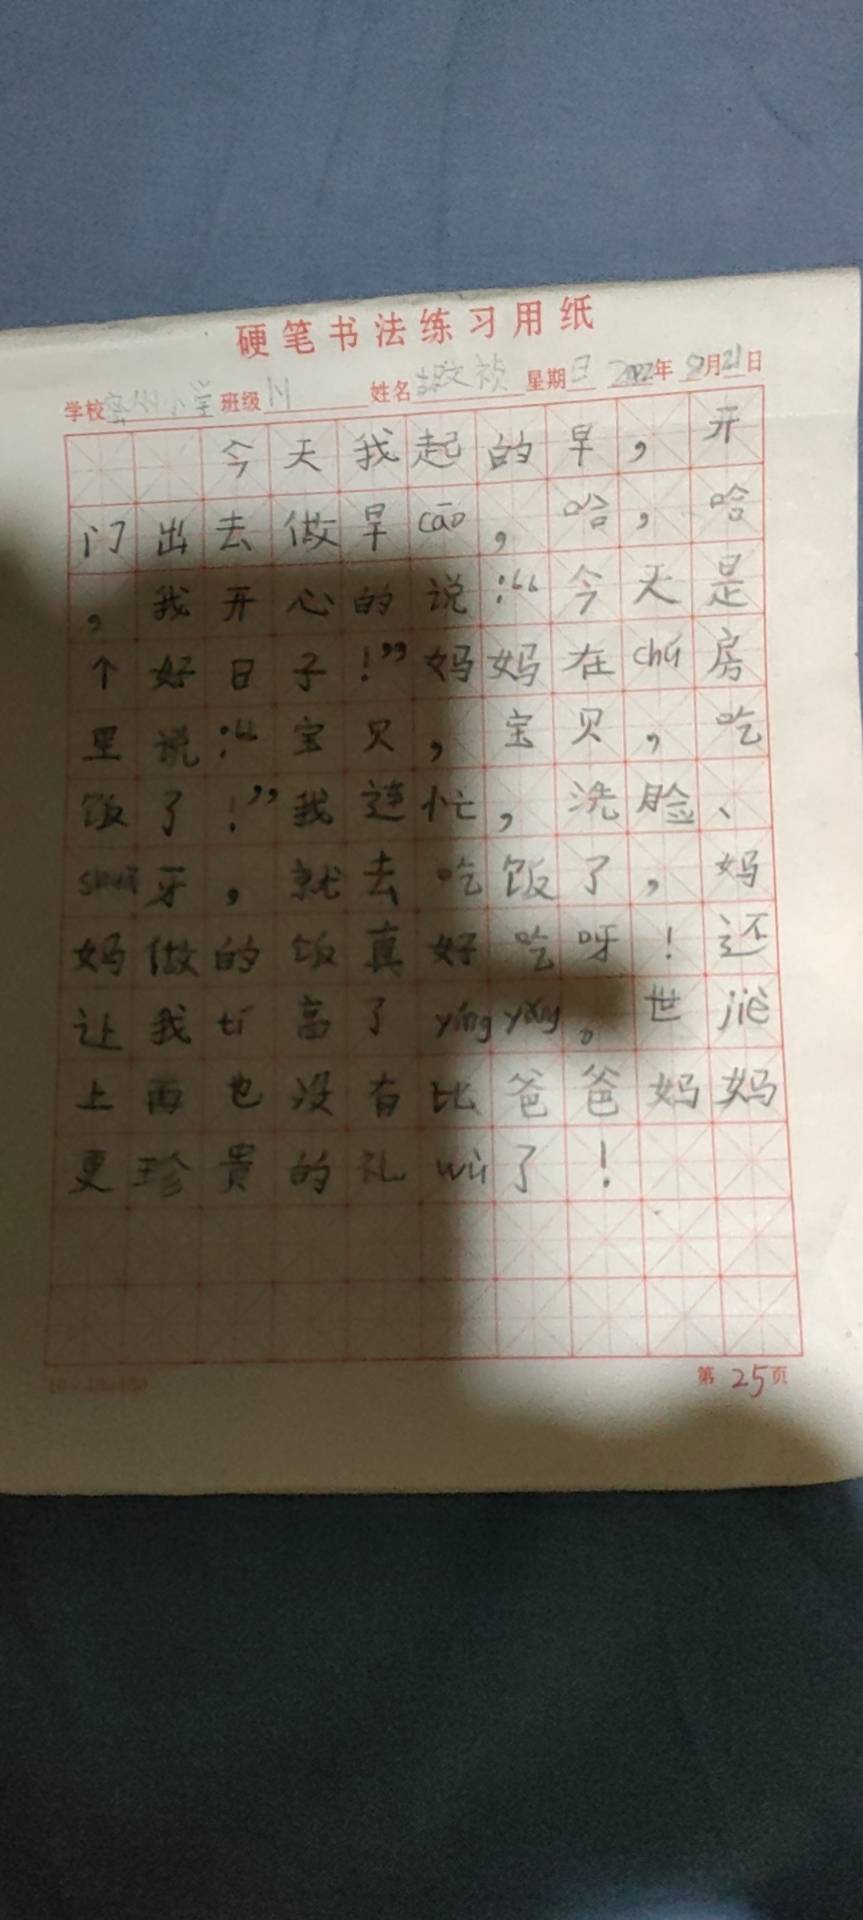 硬笔书法练习用纸
学校 小学 班级 姓名 星期日 2022年 月21日
今天我起的早，开
门出去做早cāo，哈，哈
，我开心的说：“今天是
个好日子！”妈妈在chú房
里说：“宝贝，宝贝，吃
饭了！”我连忙，洗脸、
牙，就去吃饭了，妈
妈做的饭真好吃呀！还
让我tí高了yíngyǎng。世jiè
上面也没有比爸爸妈妈
更珍贵的礼wù了！
第25页